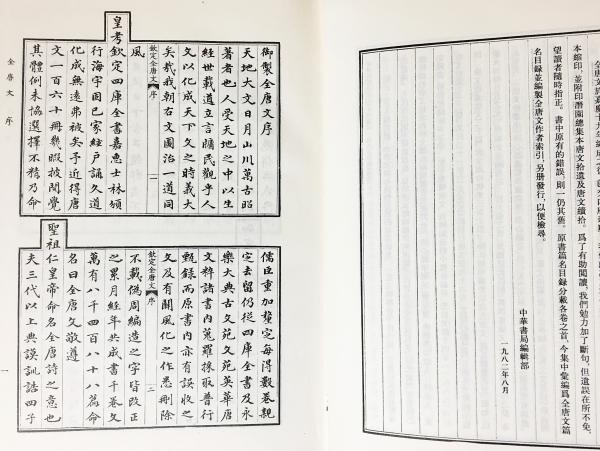 全唐文於嘉慶十九年編成
本縮印,並附印潛園總集本唐文拾遺及唐文續拾。爲了有助閱讀,我們勉力加了斷句,但遺誤在所不免,
望讀者隨時指正。書中原有的錯誤,則一仍其舊。原書篇名目錄分載各卷之首,今集中彙編爲全唐文篇
名目錄並編製全唐文作者索引,另册發行,以便檢尋。
中華書局編輯部
一九八二年八月
御製全唐文序
天地大文日月山川萬古昭
著者也人受天地之中以生
經世載道立言牖民觀乎人
文以化成天下文之時義大
矣哉我朝右文圖治一道同
欽定全唐文 序 一
風
皇考欽定四庫全書嘉惠士林頒
行海宇固已家經戶誦久道
化成無遠弗被矣予近得唐
文一百六十冊幾暇披閱覺
其體例未協選擇不精乃命
儒臣重加釐定每得數卷親
定去留仍從四庫全書及永
樂大典古文苑文苑英華唐
文粹諸書內蒐羅採取普行
甄錄而原書內亦有誤收之
文及有關風化之作悉刪除
欽定全唐文 序 二
不載僞周編造之字皆改正
之累月經年共成書千卷文
萬有八千四百八十八篇命
名曰全唐文敬遵
聖祖仁皇帝命名全唐詩之意也
夫三代以上典謨訓誥四子
全唐文 序
一